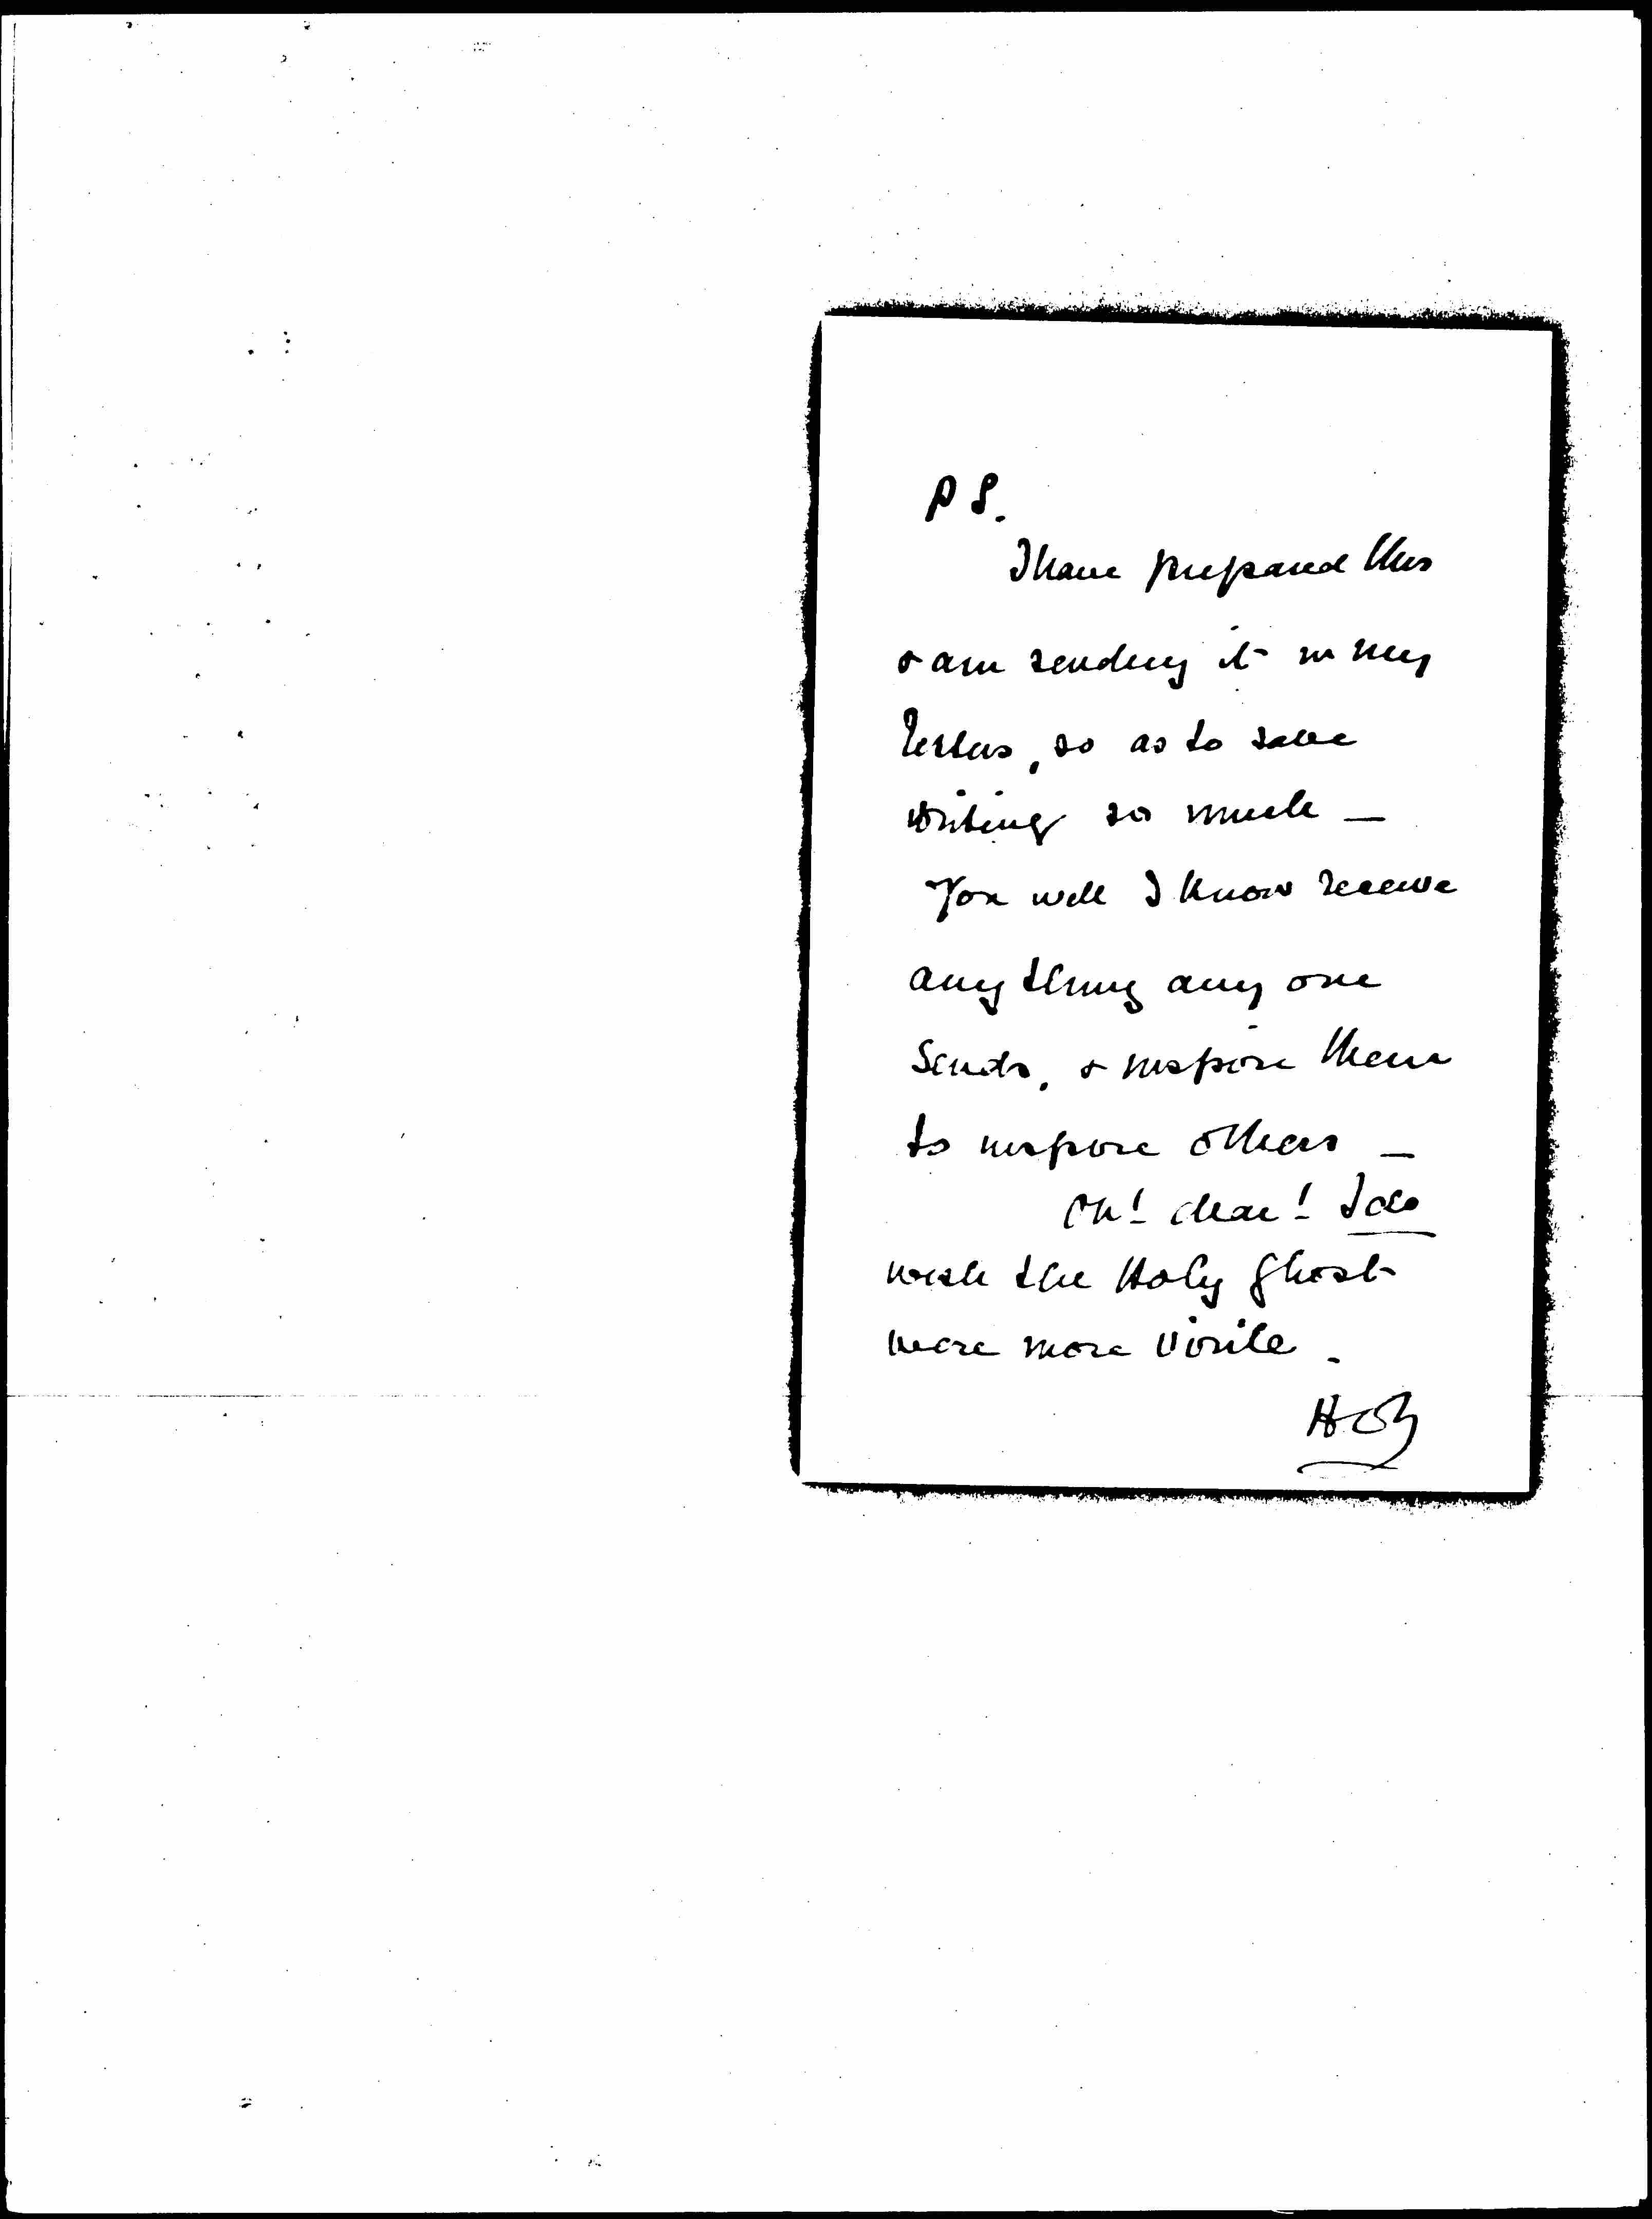 P S.
I have prepared this
& am sending it in my
letters, so as to save
writing so much —
You will I know receive
any thing any one
sends, & inspire them
to inspire others —
Oh! dear! I do
wish the Holy Ghost
were more virile.